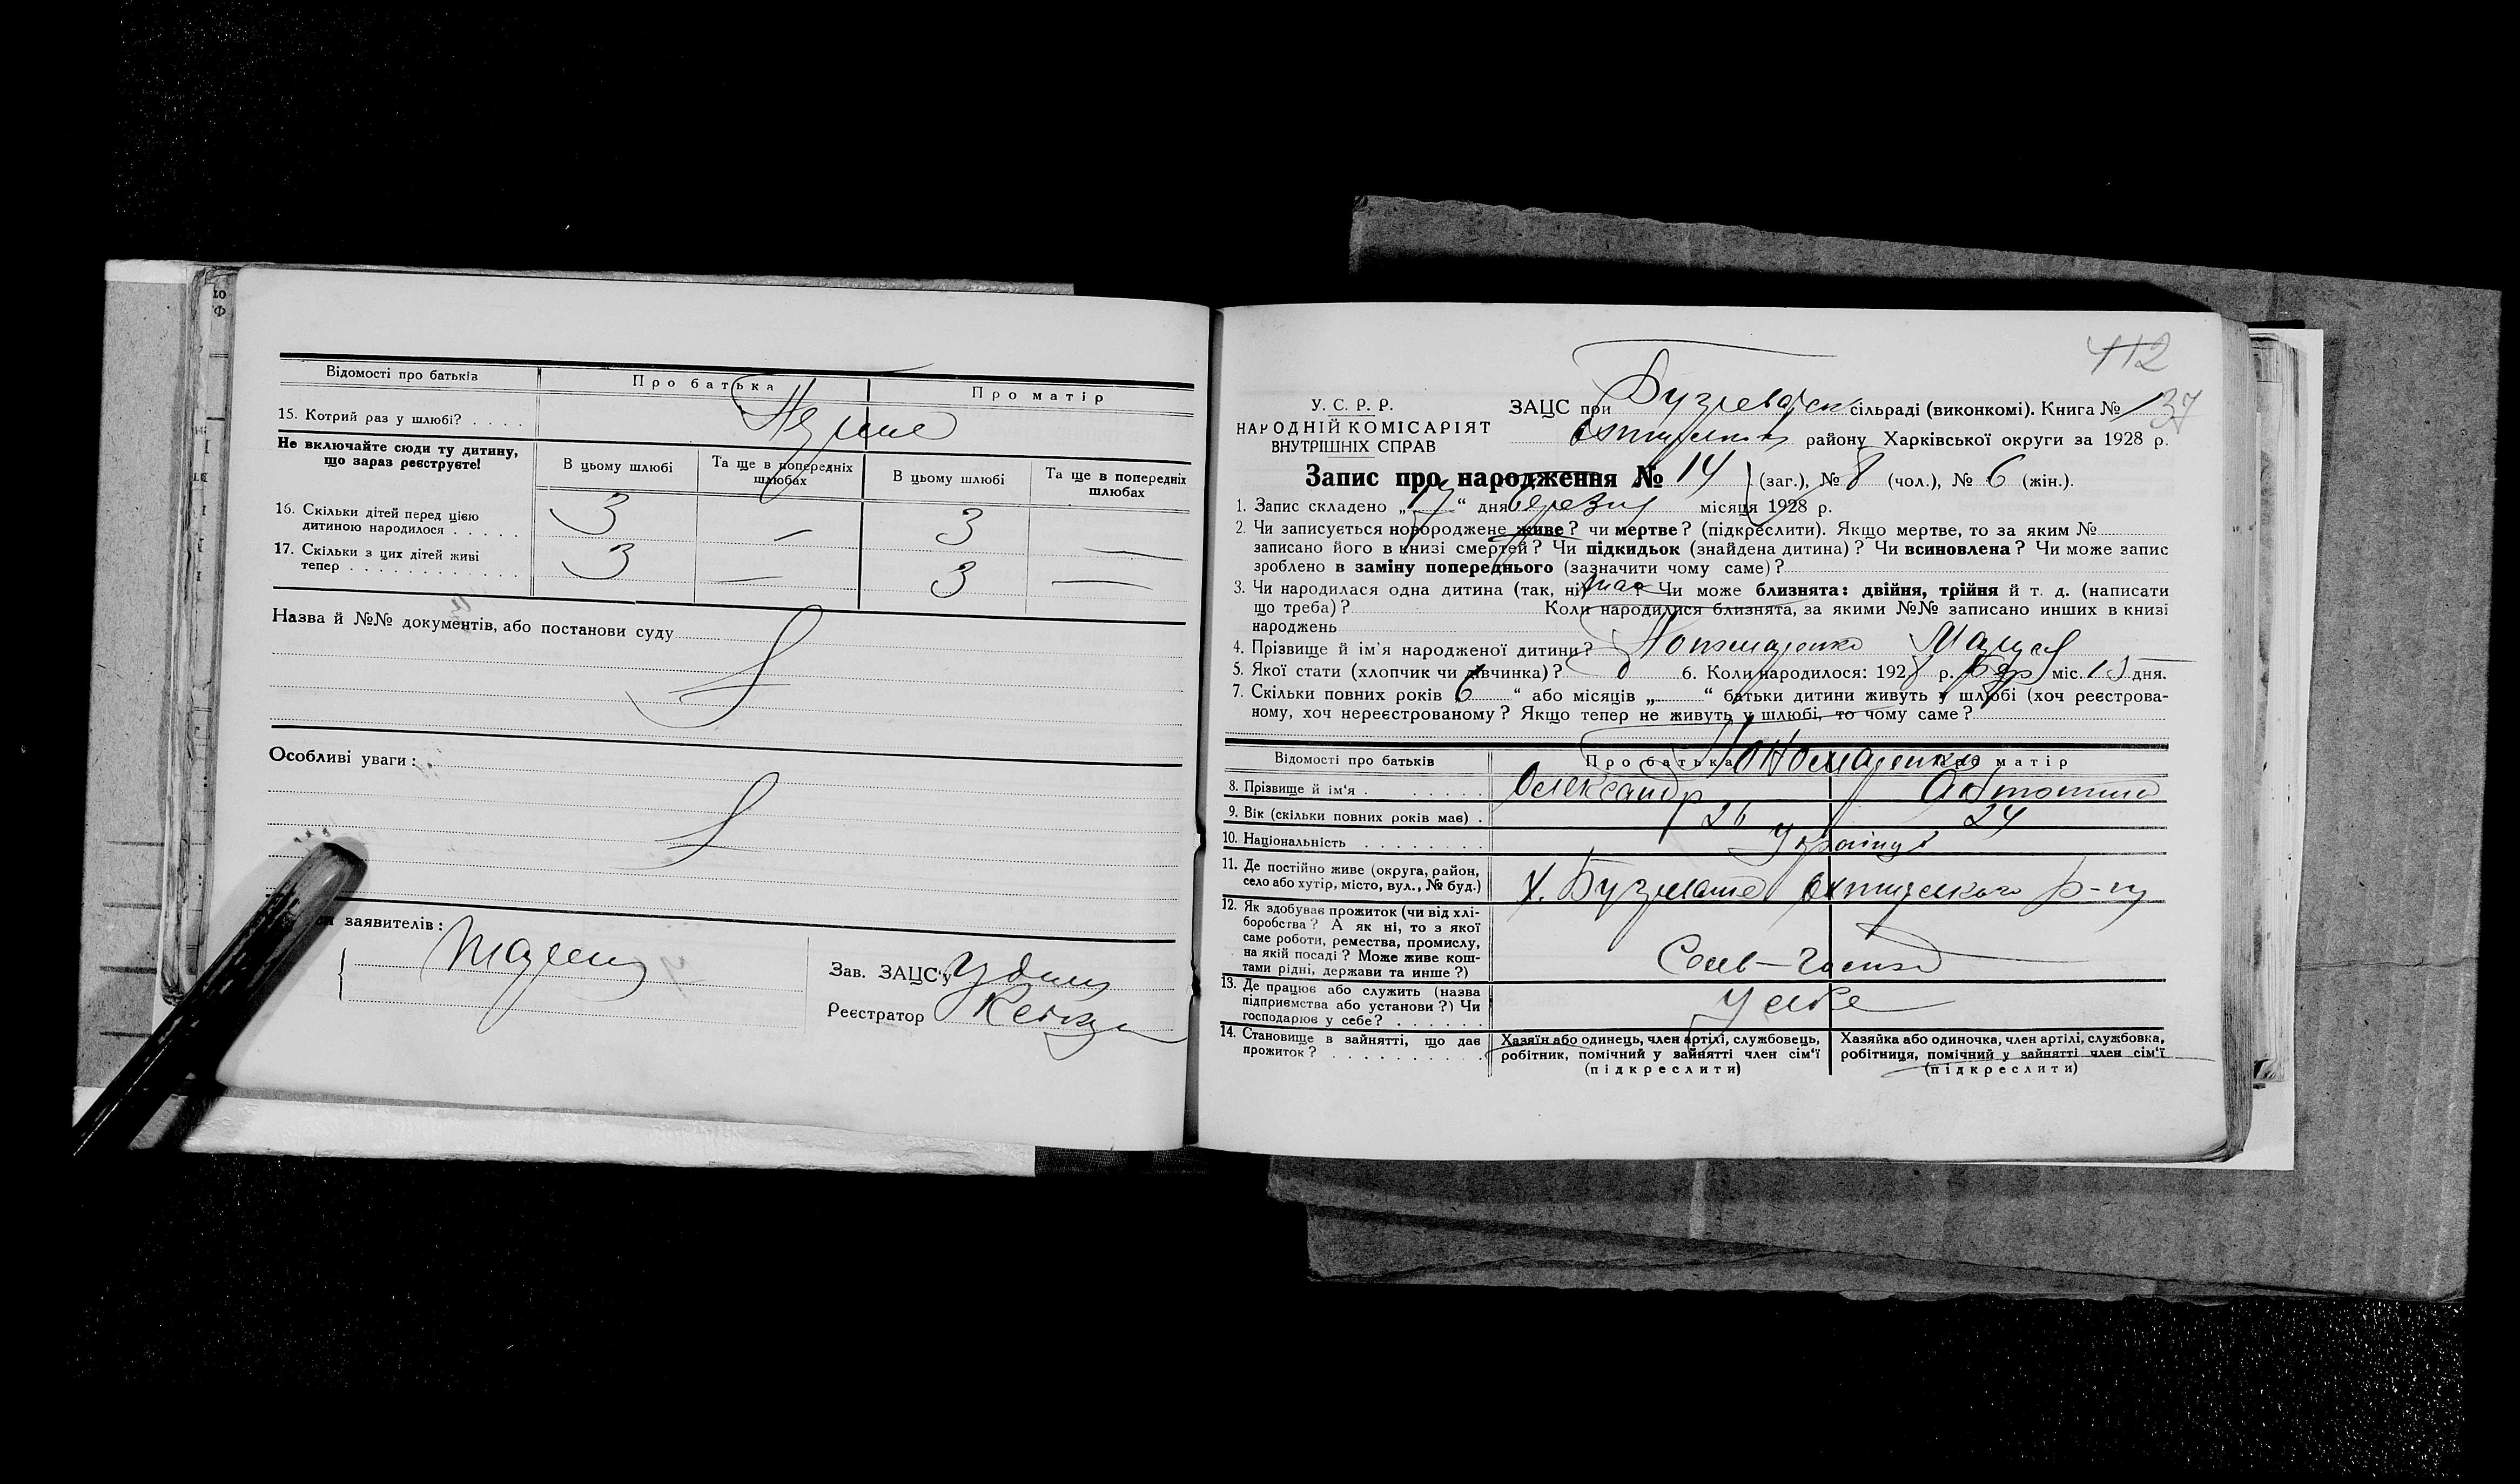 Відомості про батьків
Про батька
Про матір
15. Котрий раз у шлюбі? . . . .
Не включайте сюди ту дитину,
що зараз реєструєте!
В цьому шлюбі
Та ще в попередніх
шлюбах
В цьому шлюбі
Та ще в попередніх
шлюбах
16. Скільки дітей перед цією
дитиною народилося . . . . .
3 — 3 —
17. Скільки з цих дітей живі
тепер . . . . . . . . . . . . .
3 — 3 —
Назва й №№ документів, або постанови суду
Особливі уваги:
заявителів:
Зав. ЗАЦС'у
Реєстратор
412
37
У. С. Р. Р.
НАРОДНІЙ КОМІСАРІЯТ
ВНУТРІШНІХ СПРАВ
ЗАЦС при сільраді (виконкомі). Книга № 1
району Харківської округи за 1928 р.
Запис про народження № 14 (заг.), № 8 (чол.), № 6 (жін.).
1. Запис складено „ “ дня березня місяця 1928 р.
2. Чи записується новороджене живе? чи мертве? (підкреслити). Якщо мертве, то за яким №
записано його в книзі смертей? Чи підкидьок (знайдена дитина)? Чи всиновлена? Чи може запис
зроблено в заміну попереднього (зазначити чому саме)?
3. Чи народилася одна дитина (так, ні) так Чи може близнята: двійня, трійня й т. д. (написати
що треба)? Коли народилися близнята, за якими №№ записано инших в книзі
народжень
4. Прізвище й ім'я народженої дитини? Пономаренко
5. Якої стати (хлопчик чи дівчинка)? 6. Коли народилося: 1928 р. міс. 15 дня.
7. Скільки повних років 6 “ або місяців „ “ батьки дитини живуть у шлюбі (хоч реєстрова-
ному, хоч нереєстрованому? Якщо тепер не живуть у шлюбі, то чому саме?
Відомості про батьків
Про батька
Про матір
Пономаренко
8. Прізвище й ім'я . . . . . . . .
Олександр
9. Вік (скільки повних років має) .
26 24
10. Національність . . . . . . . .
Українці
11. Де постійно живе (округа, район,
село або хутір, місто, вул., № буд.)
р-ну
12. Як здобуває прожиток (чи від хлі-
боробства? А як ні, то з якої
саме роботи, ремества, промислу,
на якій посаді? Може живе кош-
тами рідні, держави та инше?)
13. Де працює або служить (назва
підприємства або установи?) Чи
господарює у себе? . . . . . .
У себе
14. Становище в зайнятті, що дає
прожиток? . . . . . . . . . .
Хазяїн або одинець, член артілі, службовець,
робітник, помічний у зайнятті член сім'ї
(підкреслити)
Хазяйка або одиночка, член артілі, службовка,
робітниця, помічний у зайнятті член сім'ї
(підкреслити)